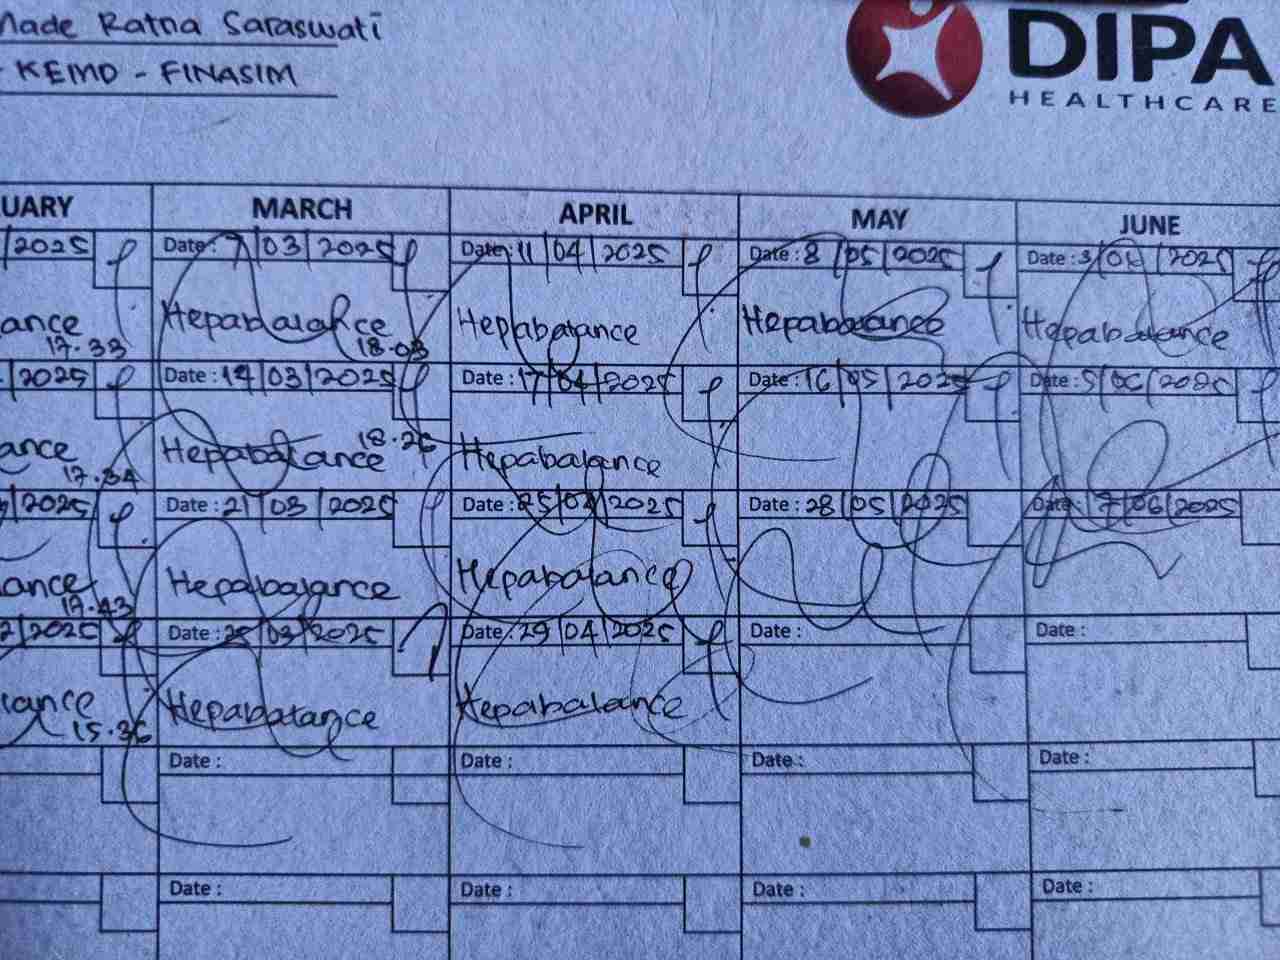 Made Ratna Saraswati
- KEMD - FINASIM
DIPA
HEALTHCARE
UARY MARCH APRIL MAY JUNE
/2025 Date: 7/03/2025 Date: 11/04/2025 Date: 8/05/2025 Date: 3/06/2025
ance Hepabalance Hepabalance Hepabalance Hepabalance
17.33 18.03
/2025 Date: 14/03/2025 Date: 17/04/2025 Date: 16/05/2025 Date: 5/06/2025
ance Hepabalance 18.26 Hepabalance
17.34
/2025 Date: 21/03/2025 Date: 25/04/2025 Date: 28/05/2025 Date: 17/06/2025
lance Hepabalance Hepabalance
17.43
2/2025 Date: /03/2025 Date: 29/04/2025 Date: Date:
lance Hepabalance Hepabalance
15.36
Date: Date: Date: Date:
Date: Date: Date: Date: